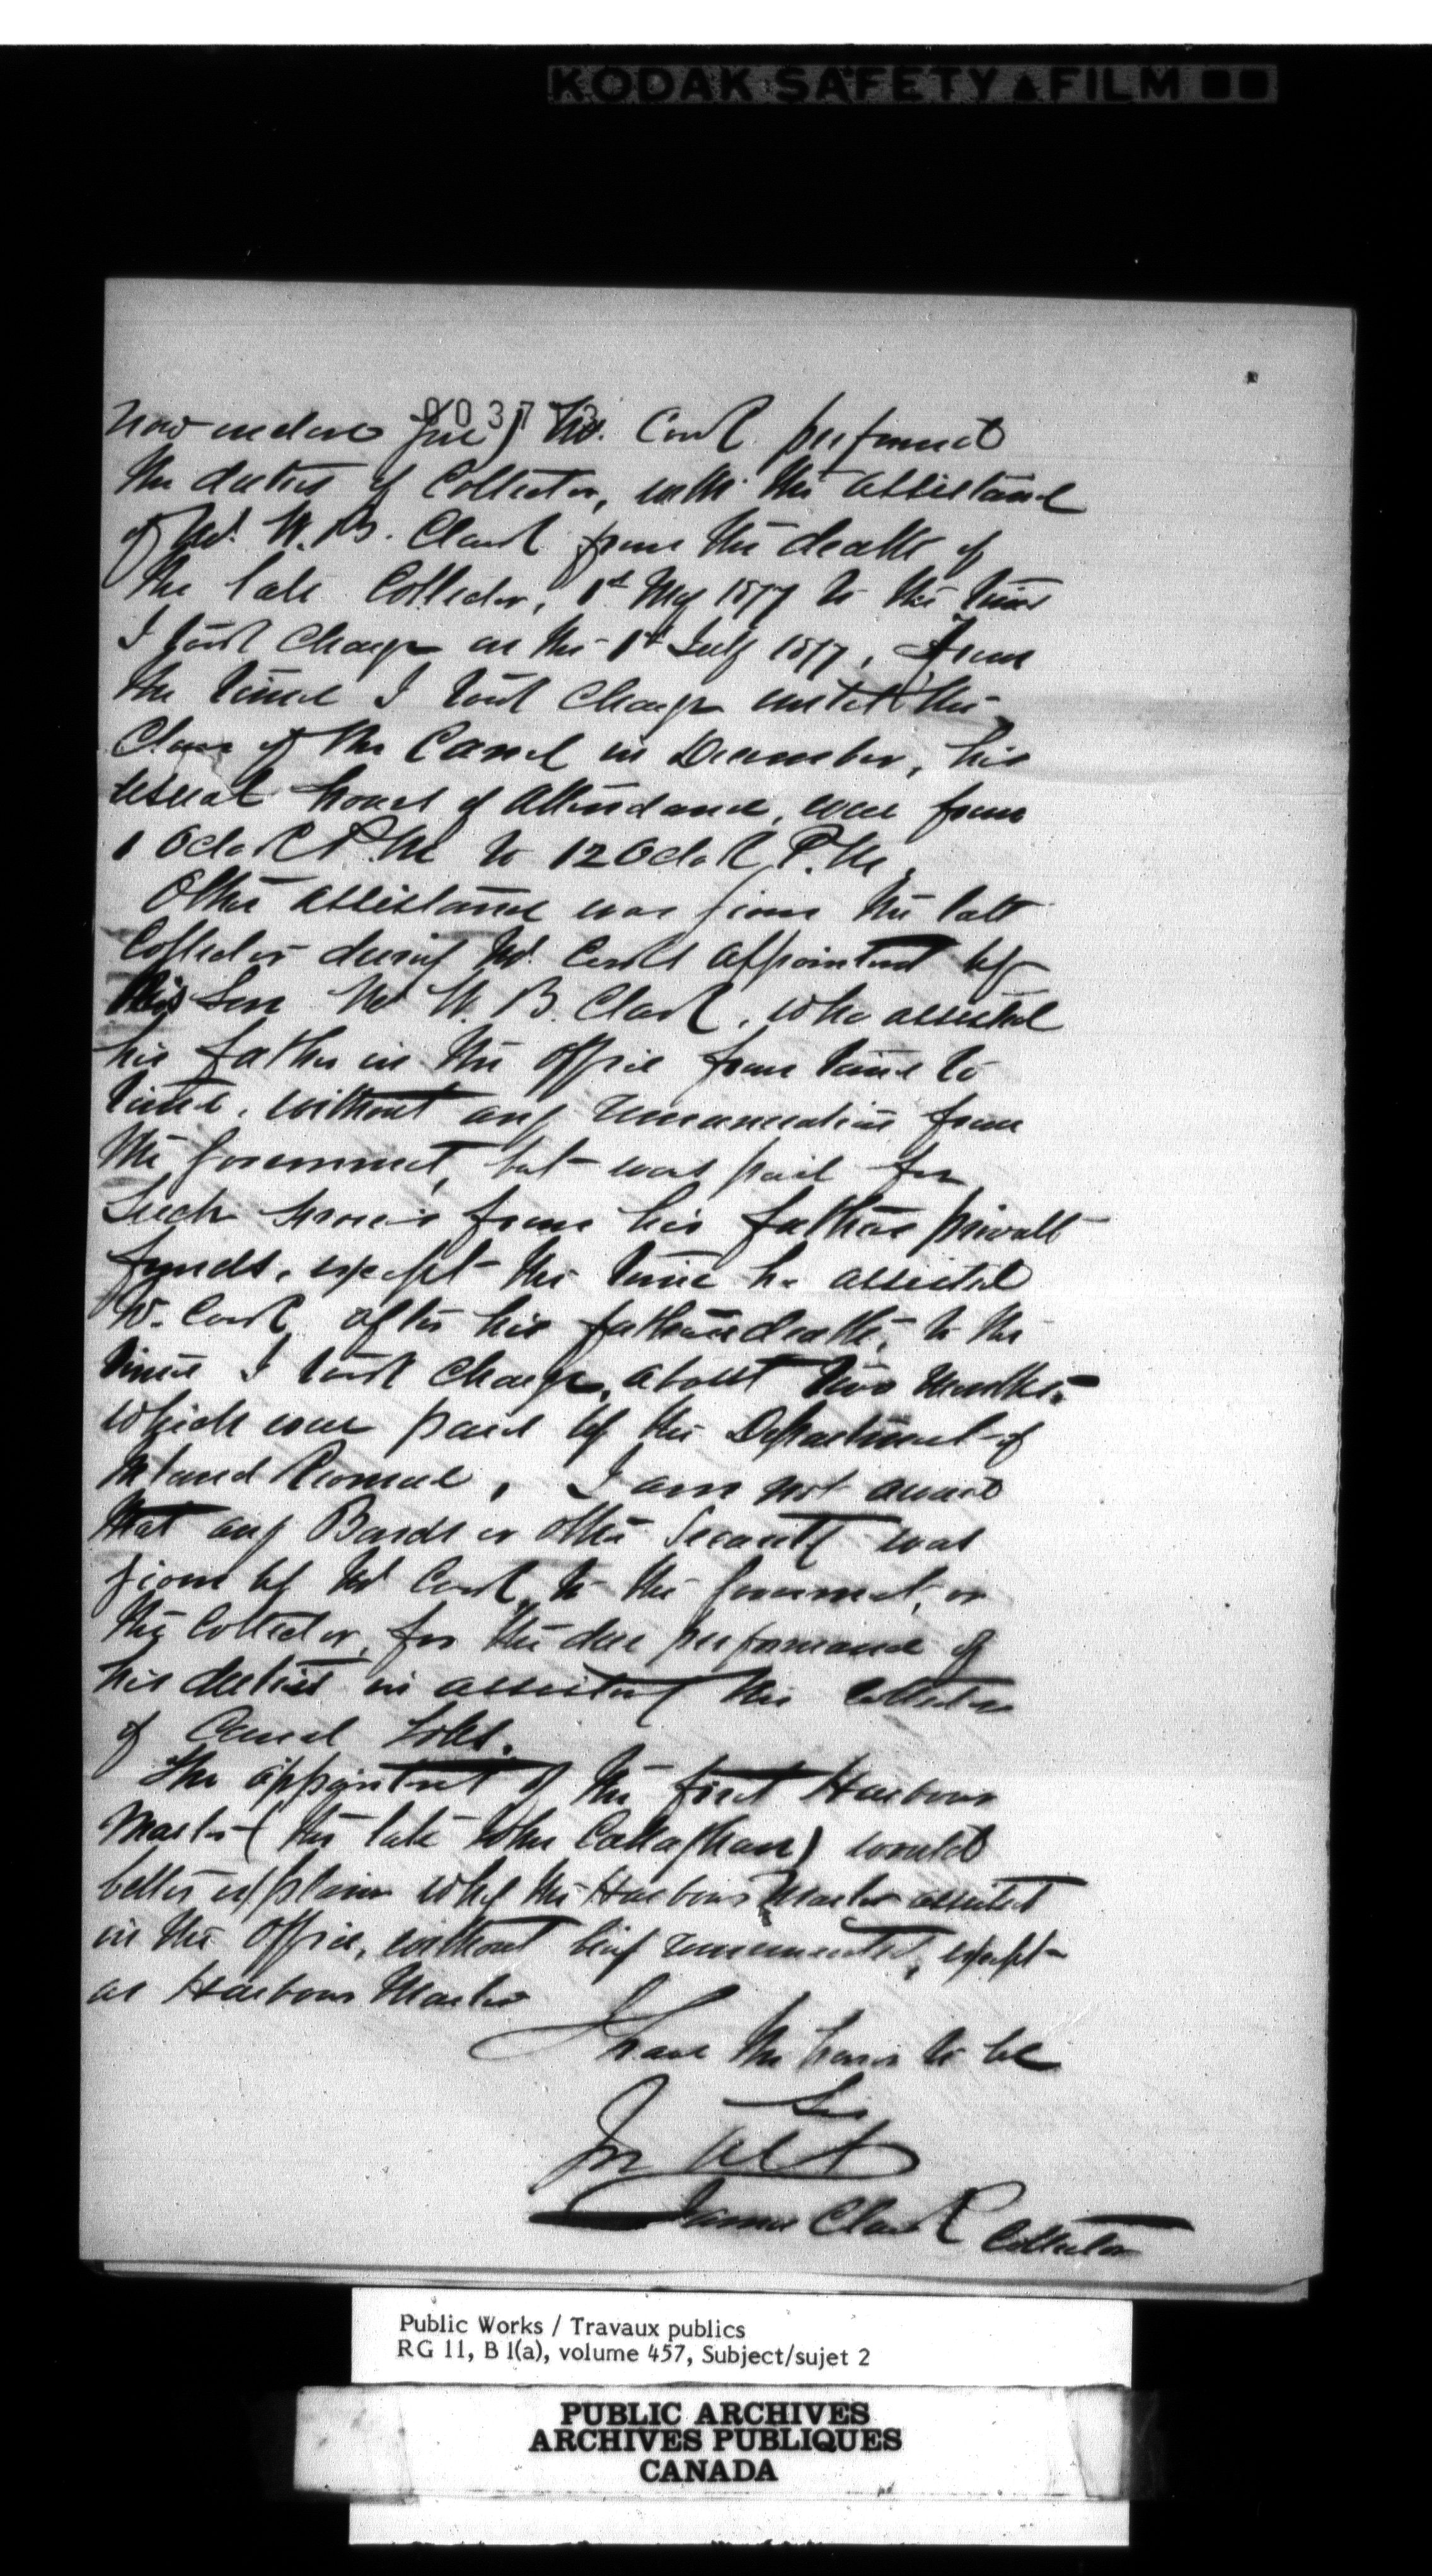 KODAK SAFETY ▲ FILM
00377
now endorse Mr. Cook performed
the duties of Collector, with the assistance
of Mr. W. B. Clark from the death of
the late Collector, 1st May 1877 to the time
I took charge on the 1st July 1877, From
the time I took charge until the
Close of the Canal in December, his
usual hours of attendance, were from
1 Oclock P.M to 12 Oclock P.M.
Other assistance was given the late
Collector during Mr. Cooks appointment by
his Son Mr W. B. Clark, who assisted
his father in the office from time to
time, without any remuneration from
the Government, but was paid for
Such services from his fathers private
funds, except the time he assisted
Mr. Cook after his fathers death, to the
time I took charge, about two months.
which was paid by the Department of
Inland Revenue, I am not aware
that any Bonds or other Security was
given by Mr Cook, to the Government, or
the Collector, for the due performance of
his duties in assisting the Collection
of Canal Tolls.
The appointment of the first Harbour
Master (the late John Callaghan) would
better explain why the Harbour Master assisted
in the Office, without being remunerated, except
as Harbour Master
I have the honor to be
Sir
James Clark Collector
Public Works / Travaux publics
RG 11, B 1(a), volume 457, Subject/sujet 2
PUBLIC ARCHIVES
ARCHIVES PUBLIQUES
CANADA